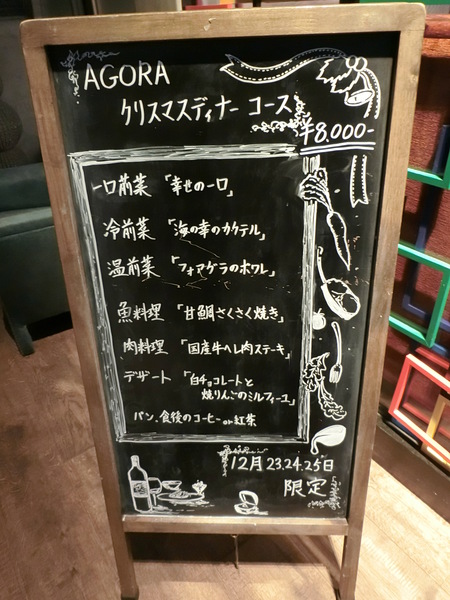 AGORA
クリスマスディナー コース
¥8,000-
一口前菜 「幸せの一口」
冷前菜 「海の幸のカクテル」
温前菜 「フォアグラのポワレ」
魚料理 「甘鯛さくさく焼き」
肉料理 「国産牛ヘレ肉ステーキ」
デザート 「白チョコレートと
焼りんごのミルフィーユ」
パン、食後のコーヒーor紅茶
12月23.24.25日
限定